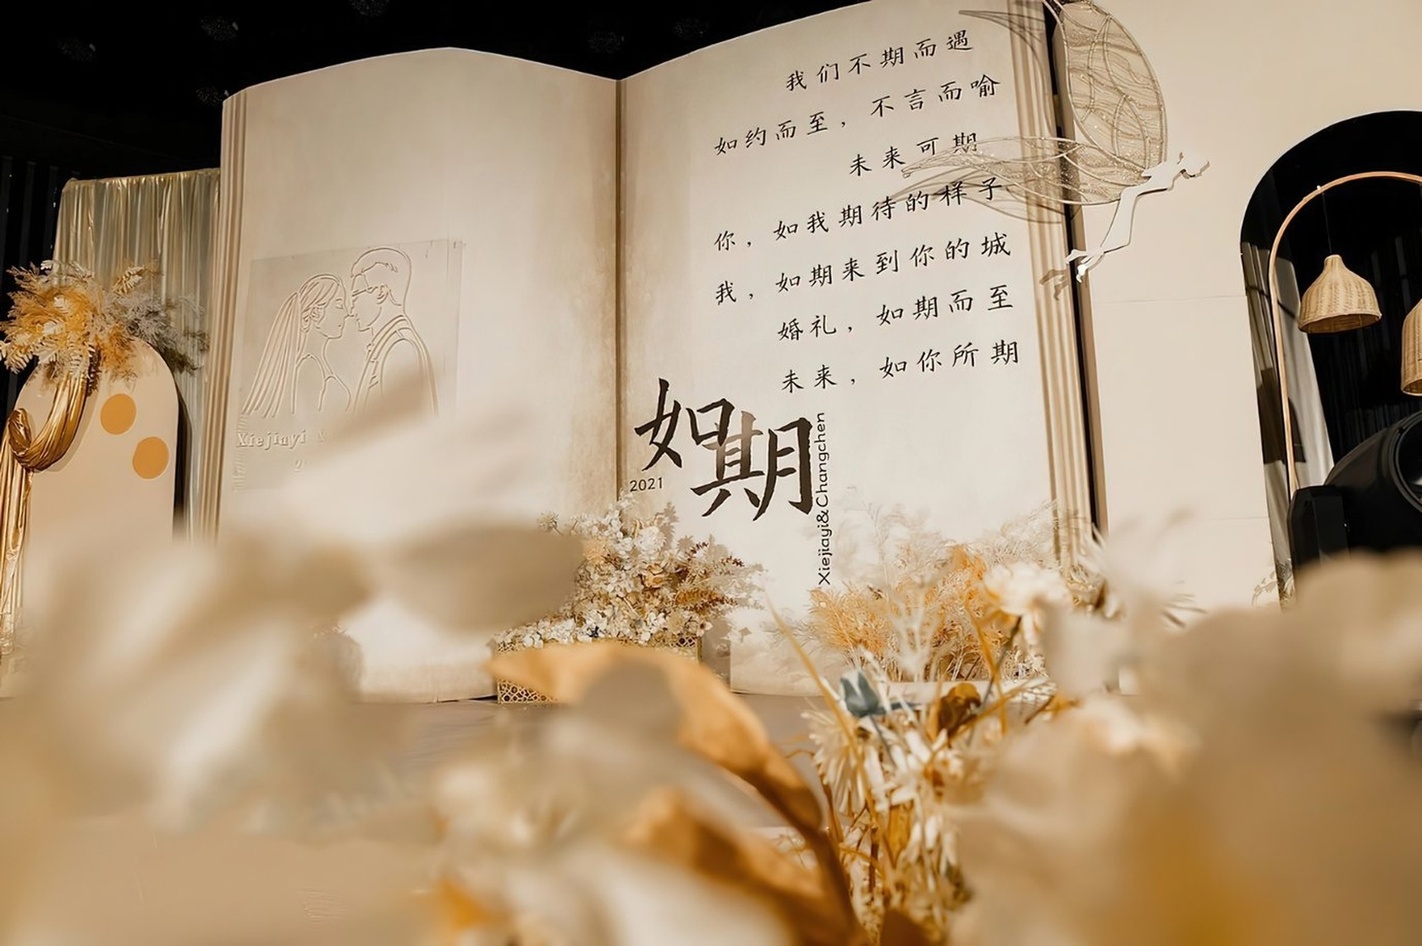 我们不期而遇
如约而至，不言而喻
未来可期
你，如我期待的样子
我，如期来到你的城
婚礼，如期而至
未来，如你所期
如期
2021
Xiejiayi&Changchen
Xiejiayi &